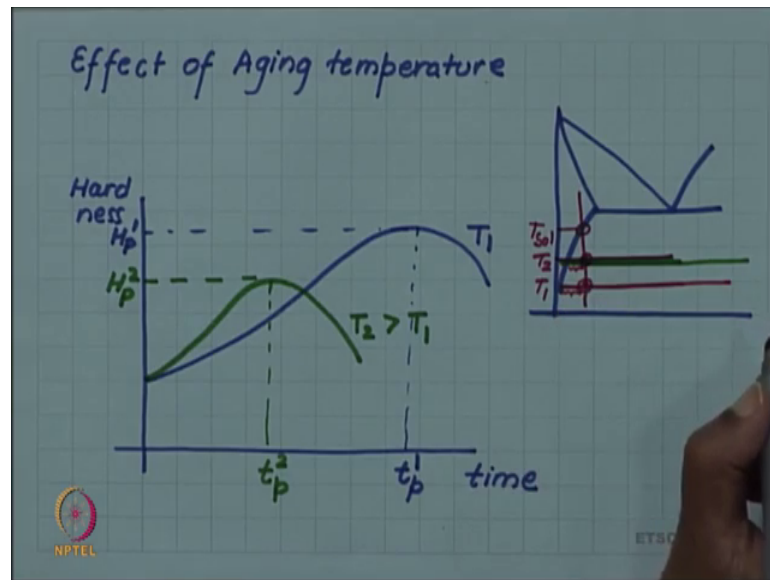 Effect of Aging temperature
Hard
ness
H_p^1
H_p^2
T_1
T_2 > T_1
t_p^2
t_p^1
time
T_sol
T_2
T_1
NPTEL